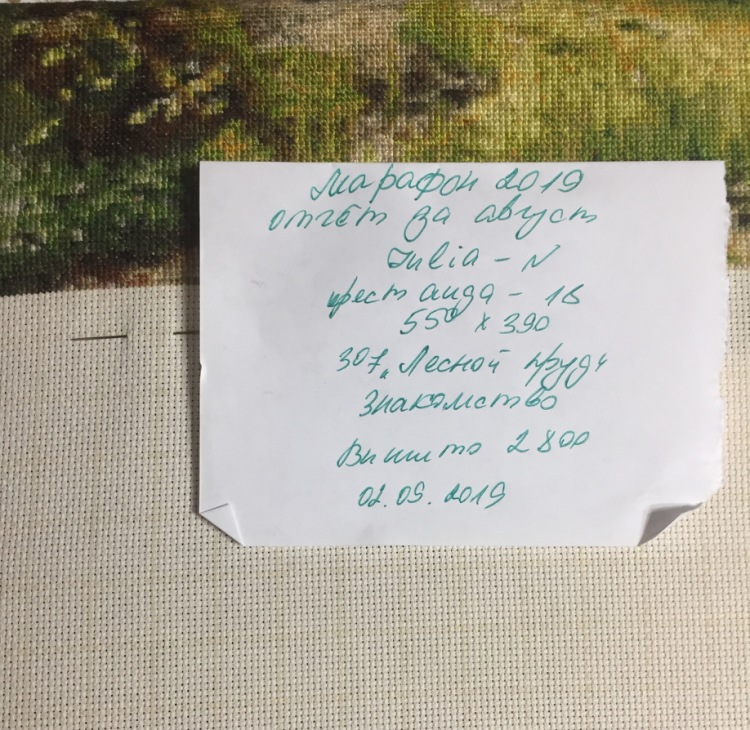 Марафон 2019
отчёт за август
Julia - N
крест аида - 18
550 х 390
307 „Лесной пруд"
Знакомство
Вышито 2800
02.09.2019